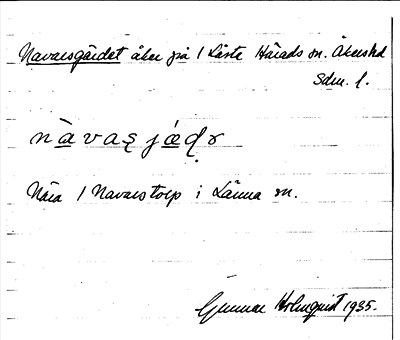 Navarsgärdet åker på 1 Läste Härads sn. Åkers hd
Sdm. l.
nàvaʂ jǽɖr
Nära 1 Navarstorp i Länna sn.
Gunnar Holmquist 1935.